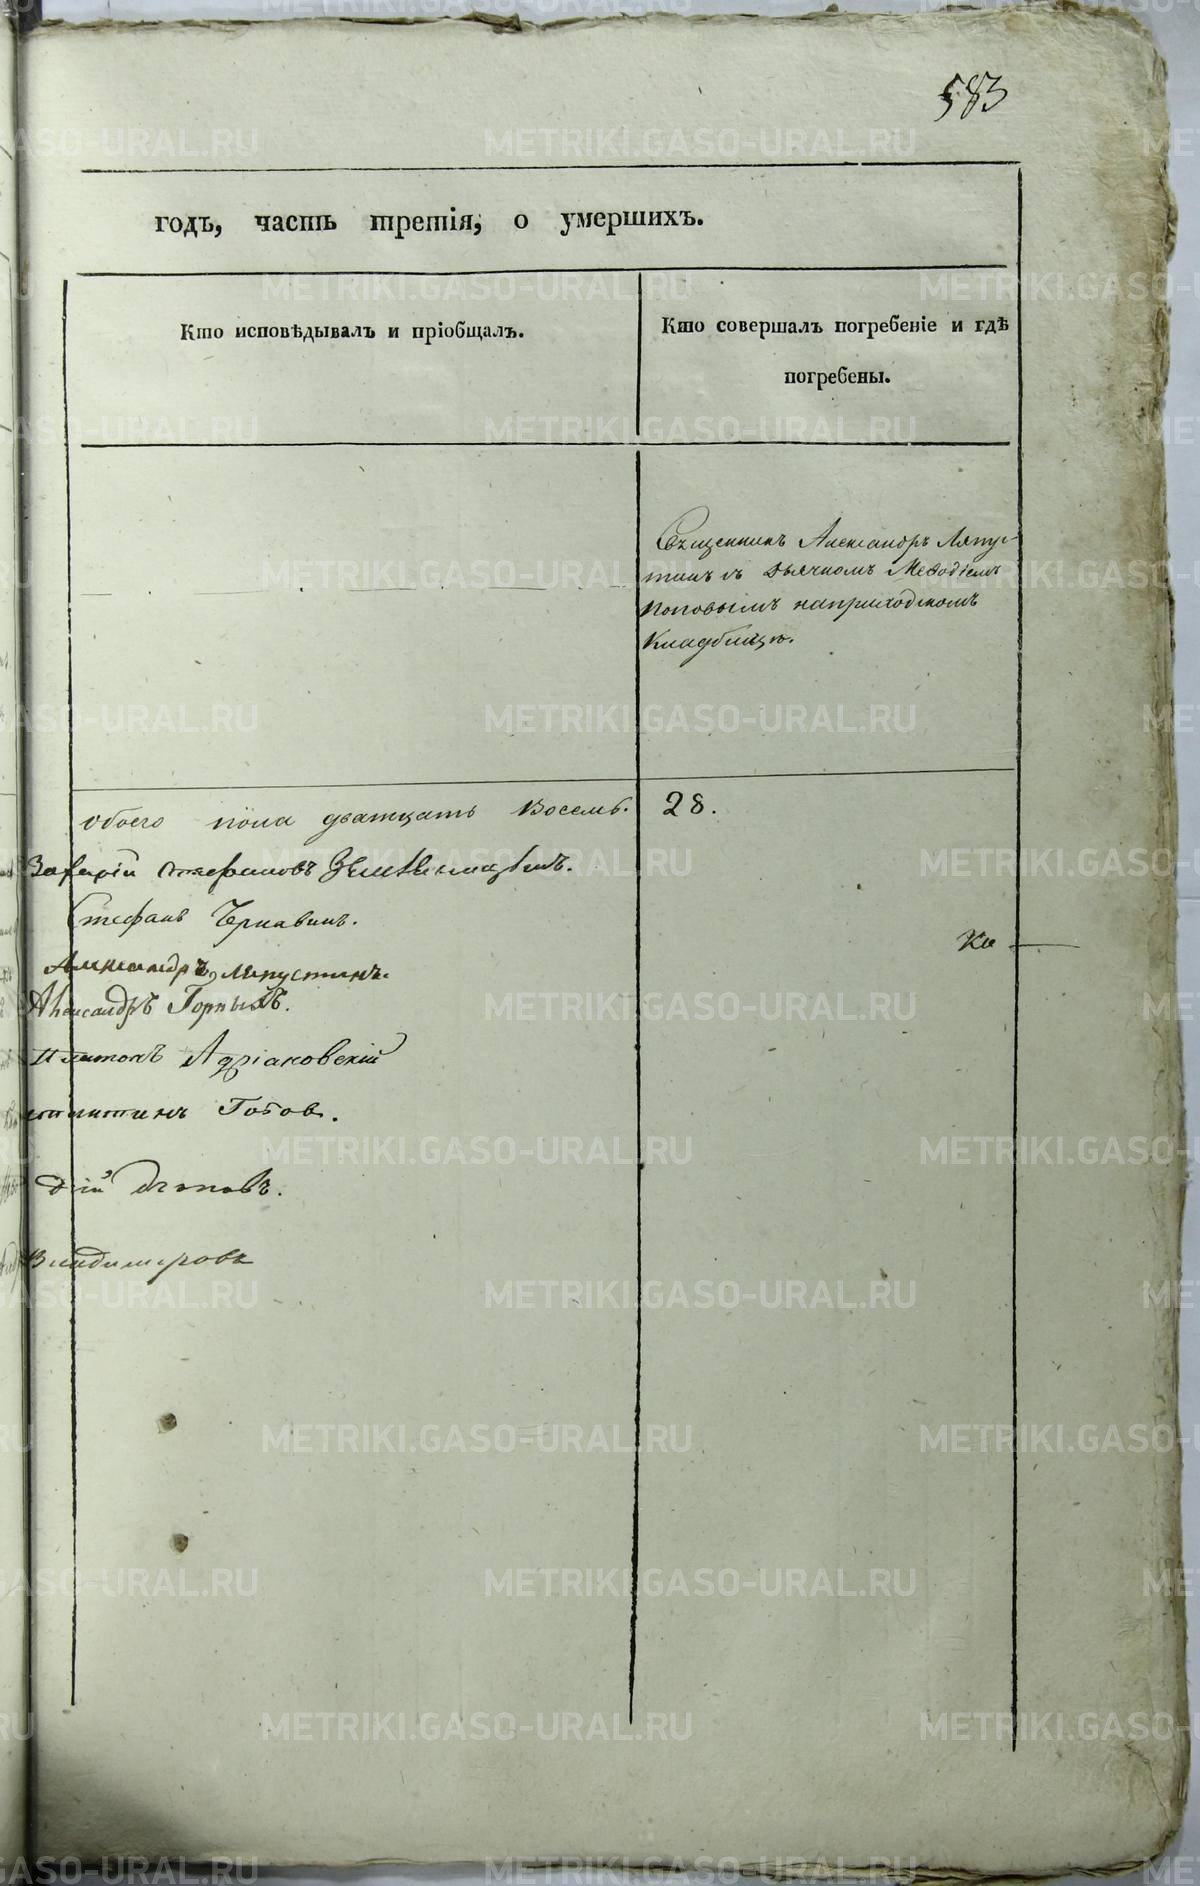 583
годъ, часть третія, о умершихъ.
Кто исповѣдывалъ и пріобщалъ.
Кто совершалъ погребеніе и гдѣ
погребены.
Священникъ Александръ Ляпус-
тинъ съ дьячкомъ Меѳодіемъ
Поповымъ наприходскомъ
Кладбищѣ.
обоего пола дватцать Восемь. 28.
Захарій Стефановъ
Стефанъ Чернавинъ.
Ко
Александръ Ляпустинъ.
Александръ Горныхъ.
Платонъ Адріановскій
стантинъ Готовъ.
дій Поповъ.
Владимировъ
METRIKI.GASO-URAL.RU